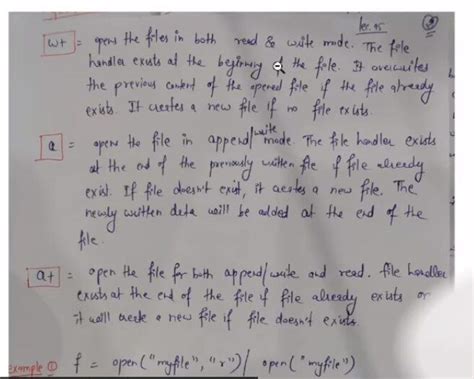 lec.45
w+ = opens the files in both read & write mode. The file
handler exists at the beginning of the file. It overwrites
the previous content of the opened file if the file already
exists. It creates a new file if no file exists.
a = opens the file in append/write mode. The file handler exists
at the end of the previously written file if file already
exist. If file doesn't exist, it creates a new file. The
newly written data will be added at the end of the
file.
a+ = open the file for both append/write and read. file handler
exists at the end of the file if file already exists or
it will create a new file if file doesn't exists.
example ① f = open("myfile", "r") / open("myfile")